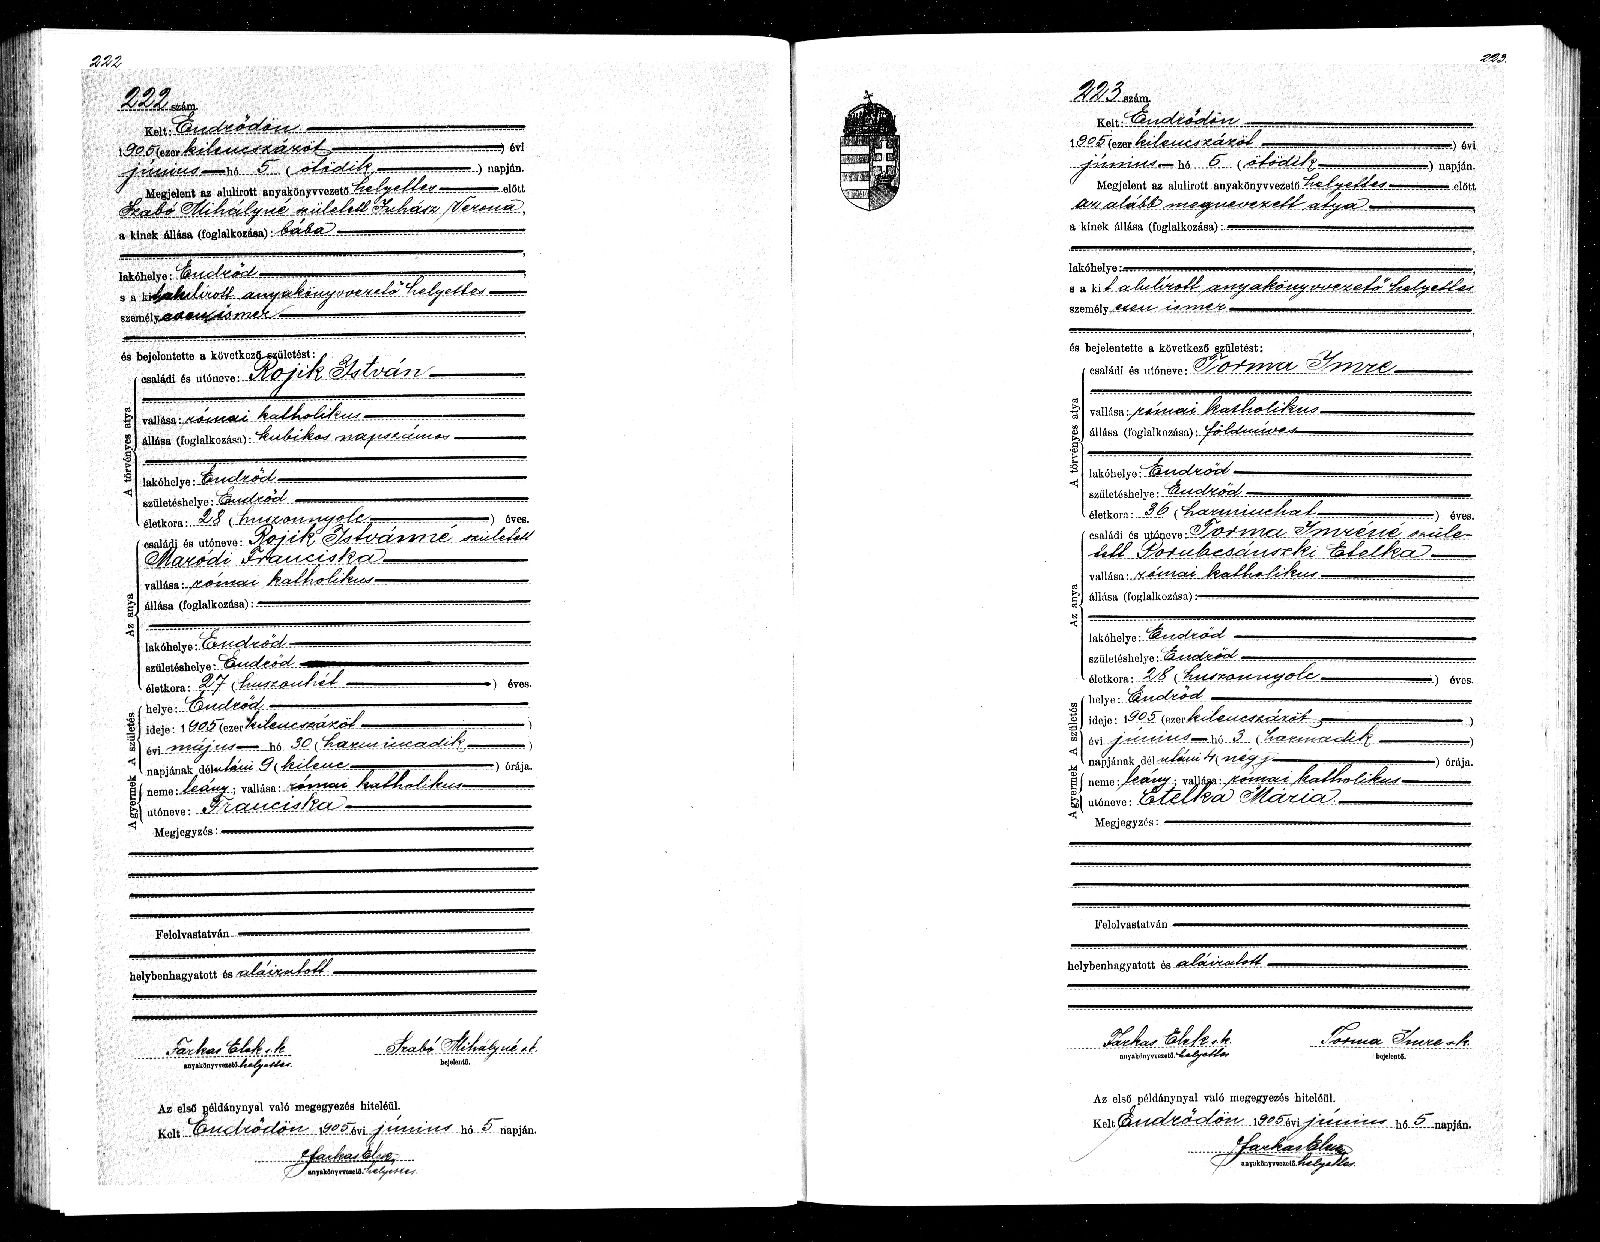 222
222 szám.
Kelt: Endrődön
1905 (ezer kilencszázöt) évi
június hó 5 (ötödik) napján.
Megjelent az alulirott anyakönyvvezető helyettes előtt
Szabó Mihályné született Juhász Verona,
a kinek állása (foglalkozása): bába
lakóhelye: Endrőd
s a kit alulirott anyakönyvvezető helyettes
személyesen ismer
és bejelentette a következő születést:
A törvényes atya
családi és utóneve: Rojik István
vallása: római katholikus
állása (foglalkozása): kubikos napszámos
lakóhelye: Endrőd
születéshelye: Endrőd
életkora: 28 (huszonnyolc) éves.
Az anya
családi és utóneve: Rojik Istvánné született
Maródi Franciska
vallása: római katholikus
állása (foglalkozása):
lakóhelye: Endrőd
születéshelye: Endrőd
életkora: 27 (huszonhét) éves.
A gyermek A születés
helye: Endrőd
ideje: 1905 (ezer kilencszázöt)
évi május hó 30 (harmincadik)
napjának délutáni 9 (kilenc) órája.
neme: leány; vallása: római katholikus
utóneve: Franciska
Megjegyzés:
Felolvastatván
helybenhagyatott és aláiratott
Farkas Elek sk Szabó Mihályné sk.
anyakönyvvezető helyettes bejelentő.
Az első példánynyal való megegyezés hiteléül.
Kelt Endrődön 1905 évi június hó 5 napján.
Farkas Elek
anyakönyvvezető helyettes.
223.
223 szám.
Kelt: Endrődön
1905 (ezer kilencszázöt) évi
június hó 5 (ötödik) napján.
Megjelent az alulirott anyakönyvvezető helyettes előtt
az alább megnevezett atya
a kinek állása (foglalkozása):
lakóhelye:
s a kit alulirott anyakönyvvezető helyettes
személyesen ismer
és bejelentette a következő születést:
A törvényes atya
családi és utóneve: Torma Imre
vallása: római katholikus
állása (foglalkozása): földmives
lakóhelye: Endrőd
születéshelye: Endrőd
életkora: 36 (harminchat) éves.
Az anya
családi és utóneve: Torma Imréné szüle-
tett Etelka
vallása: római katholikus
állása (foglalkozása):
lakóhelye: Endrőd
születéshelye: Endrőd
életkora: 28 (huszonnyolc) éves.
A gyermek A születés
helye: Endrőd
ideje: 1905 (ezer kilencszázöt)
évi június hó 3 (harmadik)
napjának dél utáni 4 (négy) órája.
neme: leány; vallása: római katholikus
utóneve: Etelka Mária
Megjegyzés:
Felolvastatván
helybenhagyatott és aláiratott
Farkas Elek sk. Torma Imre sk.
anyakönyvvezető helyettes bejelentő.
Az első példánynyal való megegyezés hiteléül.
Kelt Endrődön 1905 évi június hó 5 napján.
Farkas Elek
anyakönyvvezető helyettes.